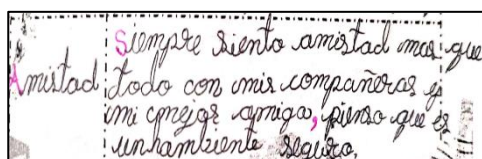 Siempre siento amistad mas que
Amistad todo con mis compañeras y
mi mejor amiga, pienso que es
un hambiente seguro.